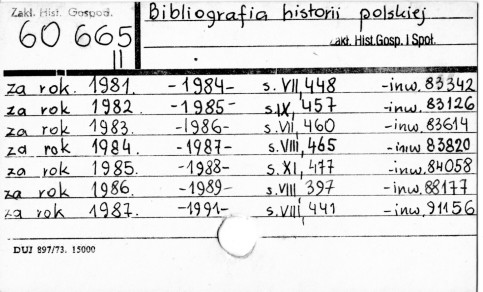 Zakł. Hist. Gospod.
60 665
II
Bibliografia historii polskiej
Zakł. Hist.Gosp. I Społ.
za rok. 1981. -1984- s. VII, 448 -inw. 83342
za rok 1982. -1985- s. IX, 457 -inw. 83126
za rok 1983. -1986- s. VII, 460 -inw. 83614
za rok 1984. -1987- s. VIII, 465 -inw 83820
za rok 1985. -1988- s. XI, 477 -inw. 84058
za rok 1986. -1989- s. VIII 397 -inw. 88177
za rok 1987. -1991- s. VIII, 441 -inw. 91156
DUJ 897/73. 15000